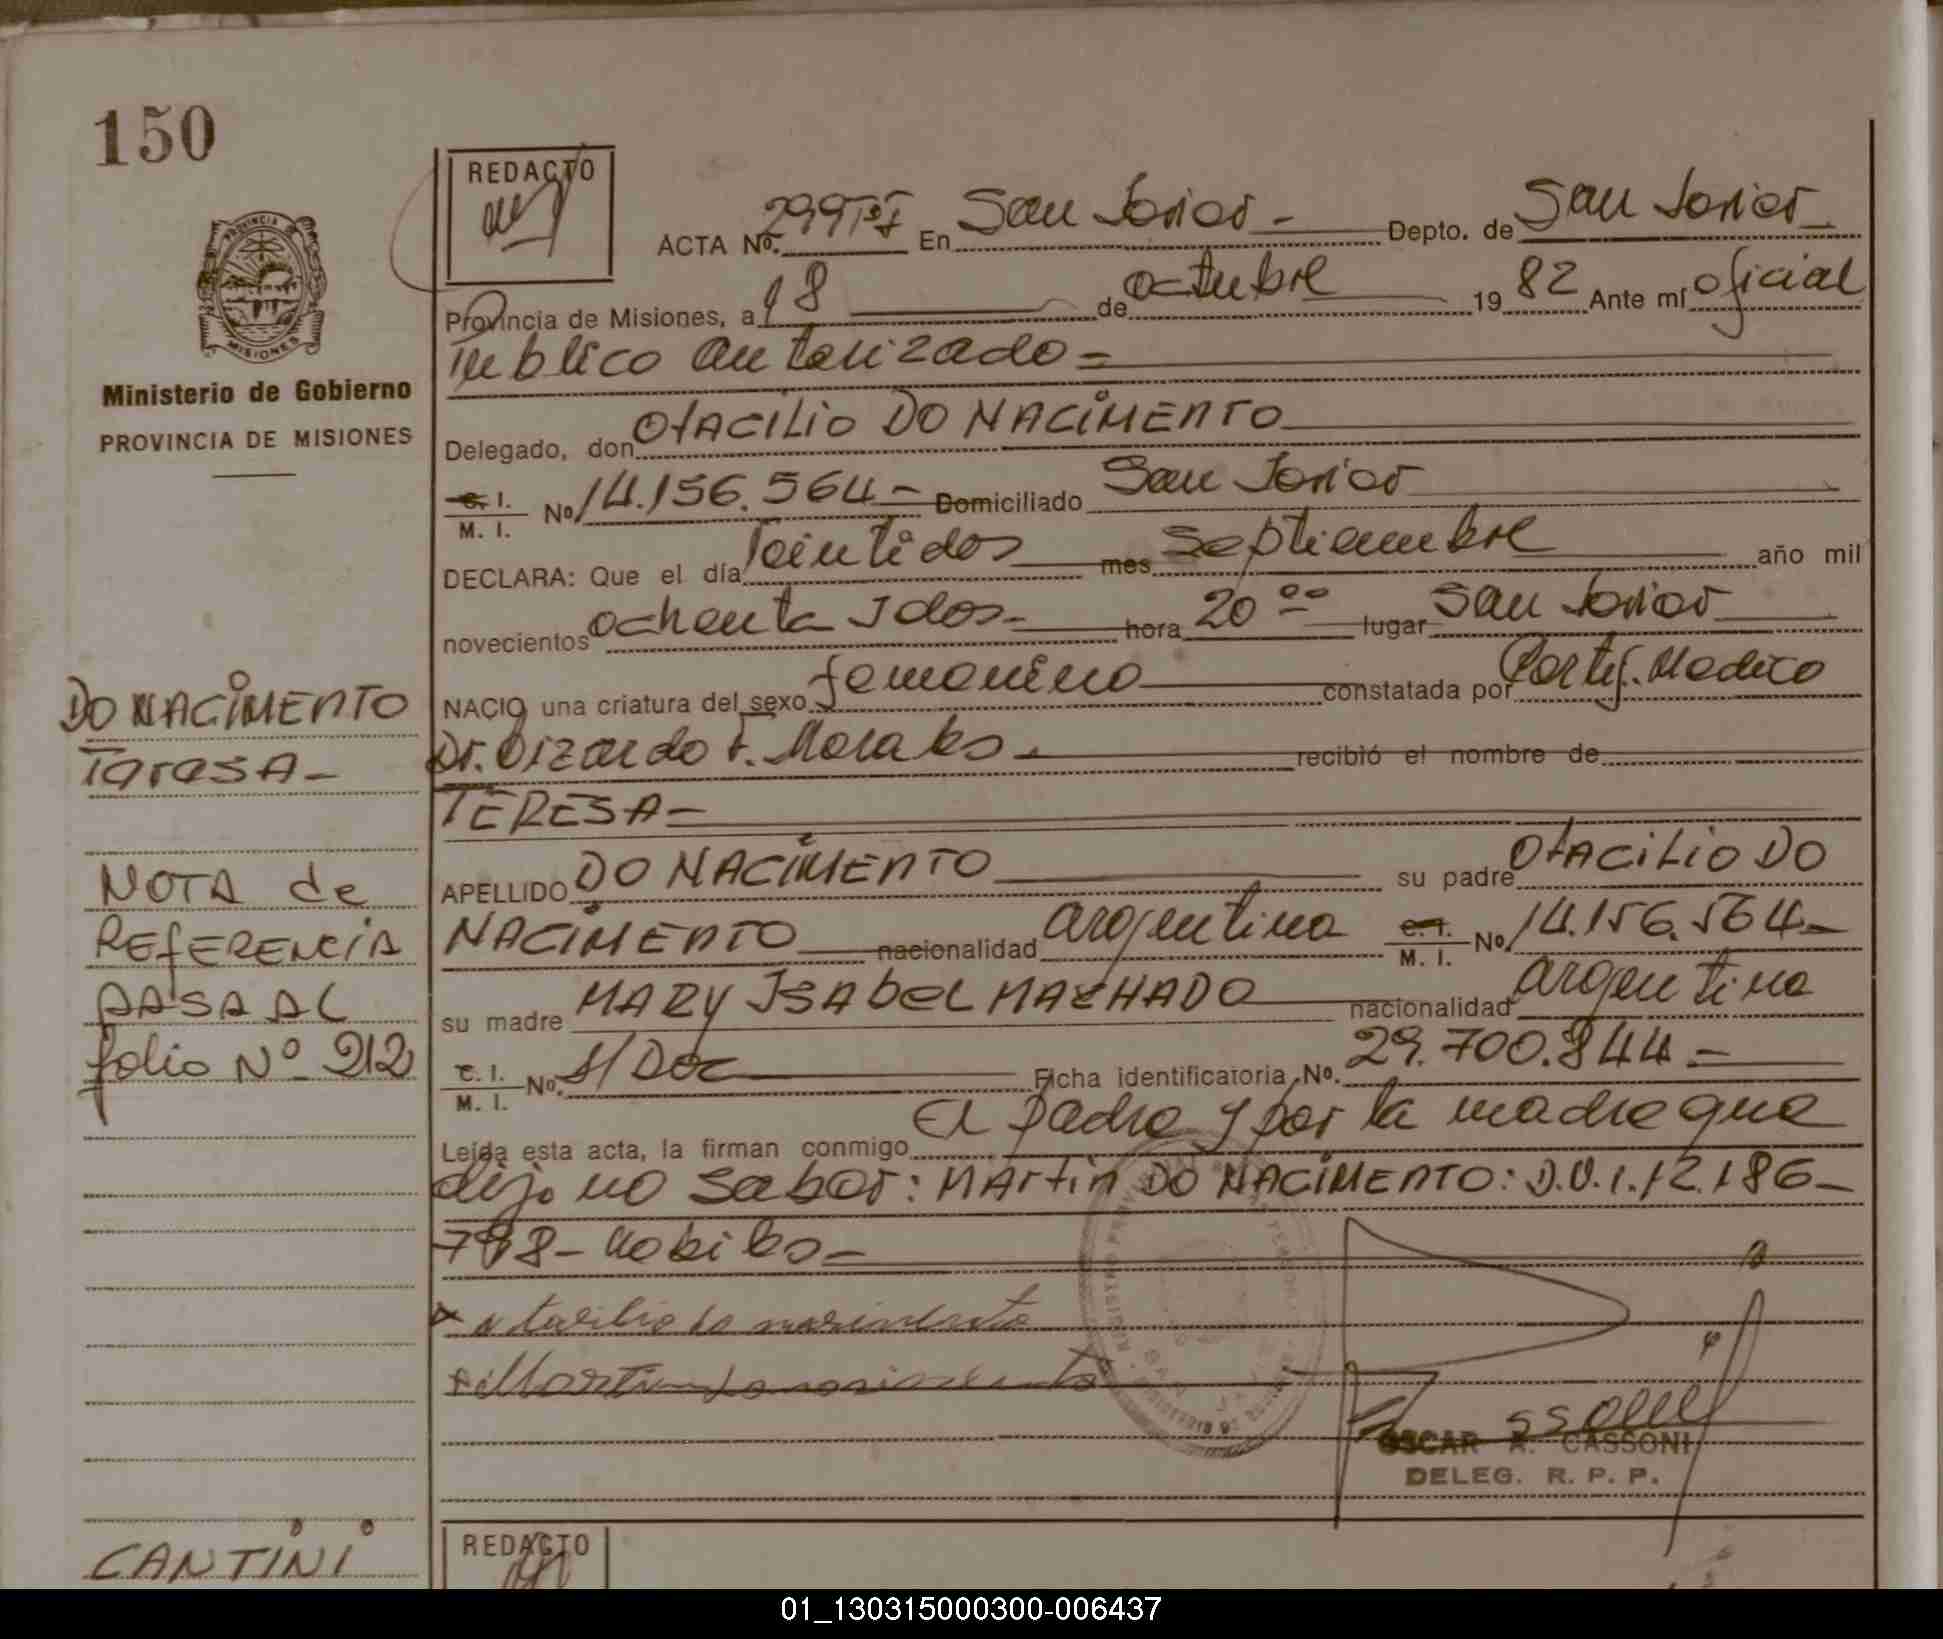 150
REDACTO
ACTA No. 299 T° I En San Javier - Depto. de San Javier
PROVINCIA
MISIONES
Provincia de Misiones, a 18 de octubre 19 82 Ante mí oficial
Publico autorizado =
Ministerio de Gobierno
PROVINCIA DE MISIONES
Delegado, don OtACiLiO DO NACIMENTO
C. I. M. I. No 14.156.564 - Domiciliado San Javier
DECLARA: Que el día Veintidos mes Septiembre año mil
novecientos ochenta y dos - hora 20 00 lugar San Javier
NACIO una criatura del sexo femenino constatada por Certif. Medico
DO NACIMENTO
TeresA -
Dr. Lizardo F. Morales - recibió el nombre de
TERESA -
APELLIDO DO NACIMENTO su padre OtACiLiO DO
NACIMENTO nacionalidad argentina C. I. M. I. No 14.156.564 -
su madre MARY ISAbeL MACHADO nacionalidad argentina
C. I. M. I. No. S/Doc Ficha identificatoria No. 29.700.844 -
NOTA de
REfERENCIA
PASA AL
folio N° 212
Leída esta acta, la firman conmigo El padre y por la madre que
dijo no saber: MArtin DO NACIMENTO: D.U.I. 12.186 -
798 - Vobiles -
otacilio do nasimento
Martin do nasimento
OSCAR A. CASSONI
DELEG. R. P. P.
CANTINI
REDACTO
01_130315000300-006437